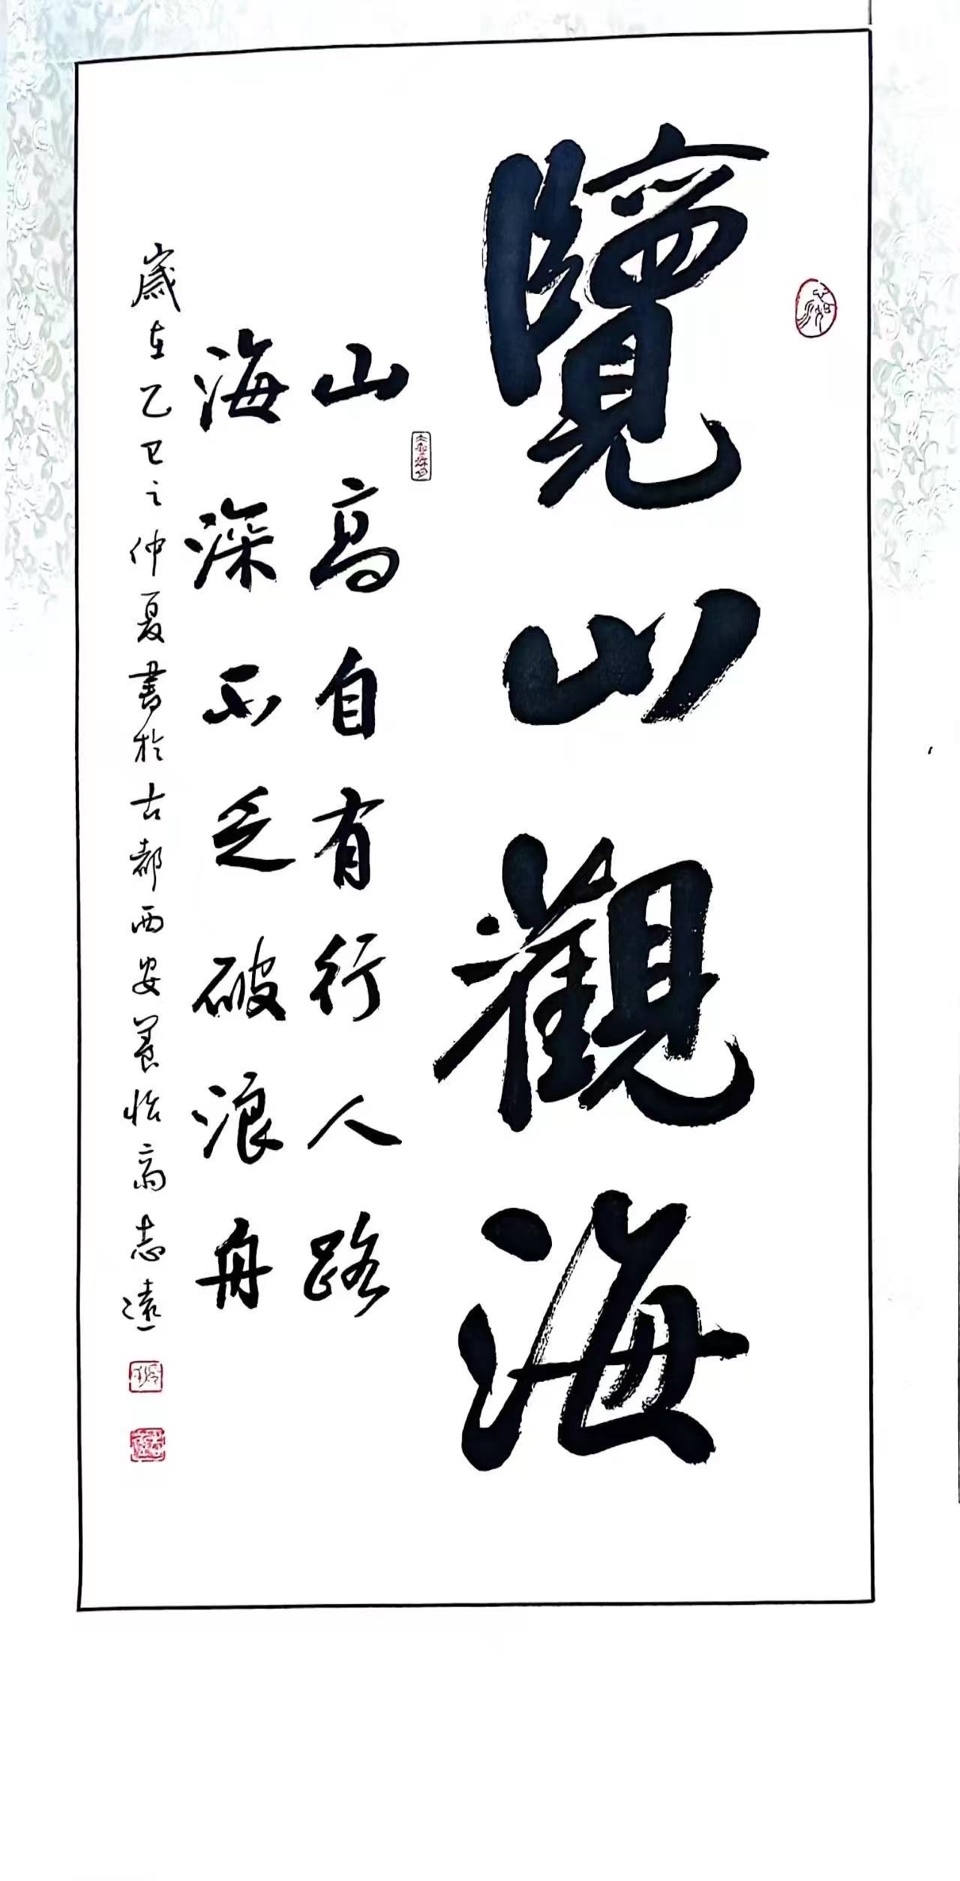 覽山觀海
山高自有行人路
海深不乏破浪舟
歲在乙巳之仲夏書於古都西安養怡斋志遠